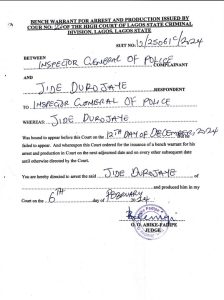 BENCH WARRANT FOR ARREST AND PRODUCTION ISSUED BY
OF THE HIGH COURT OF LAGOS STATE CRIMINAL
DIVISION, LAGOS, LAGOS STATE
SUIT NO:
BETWEEN
INSPECTOR GENERAL OF POLICE
COMPLAINANT
AND
JIDE DUROJAYE
RESPONDENT
TO INSPECTOR GENERAL OF POLICE
WHEREAS: JIDE DUROJAYE
Was bound to appear before this Court on the 12TH DAY OF DECEMBER, 2024
failed to appear. And whereupon this Court ordered for the issuance of a bench warrant for his
arrest and production in Court on the next adjourned date and on every other subsequent date
until otherwise directed by the Court.
You are hereby directed to arrest the said JIDE DUROJAYE
and produced him in my
Court on the 6TH day of FEBRUARY 2024
JUDGE